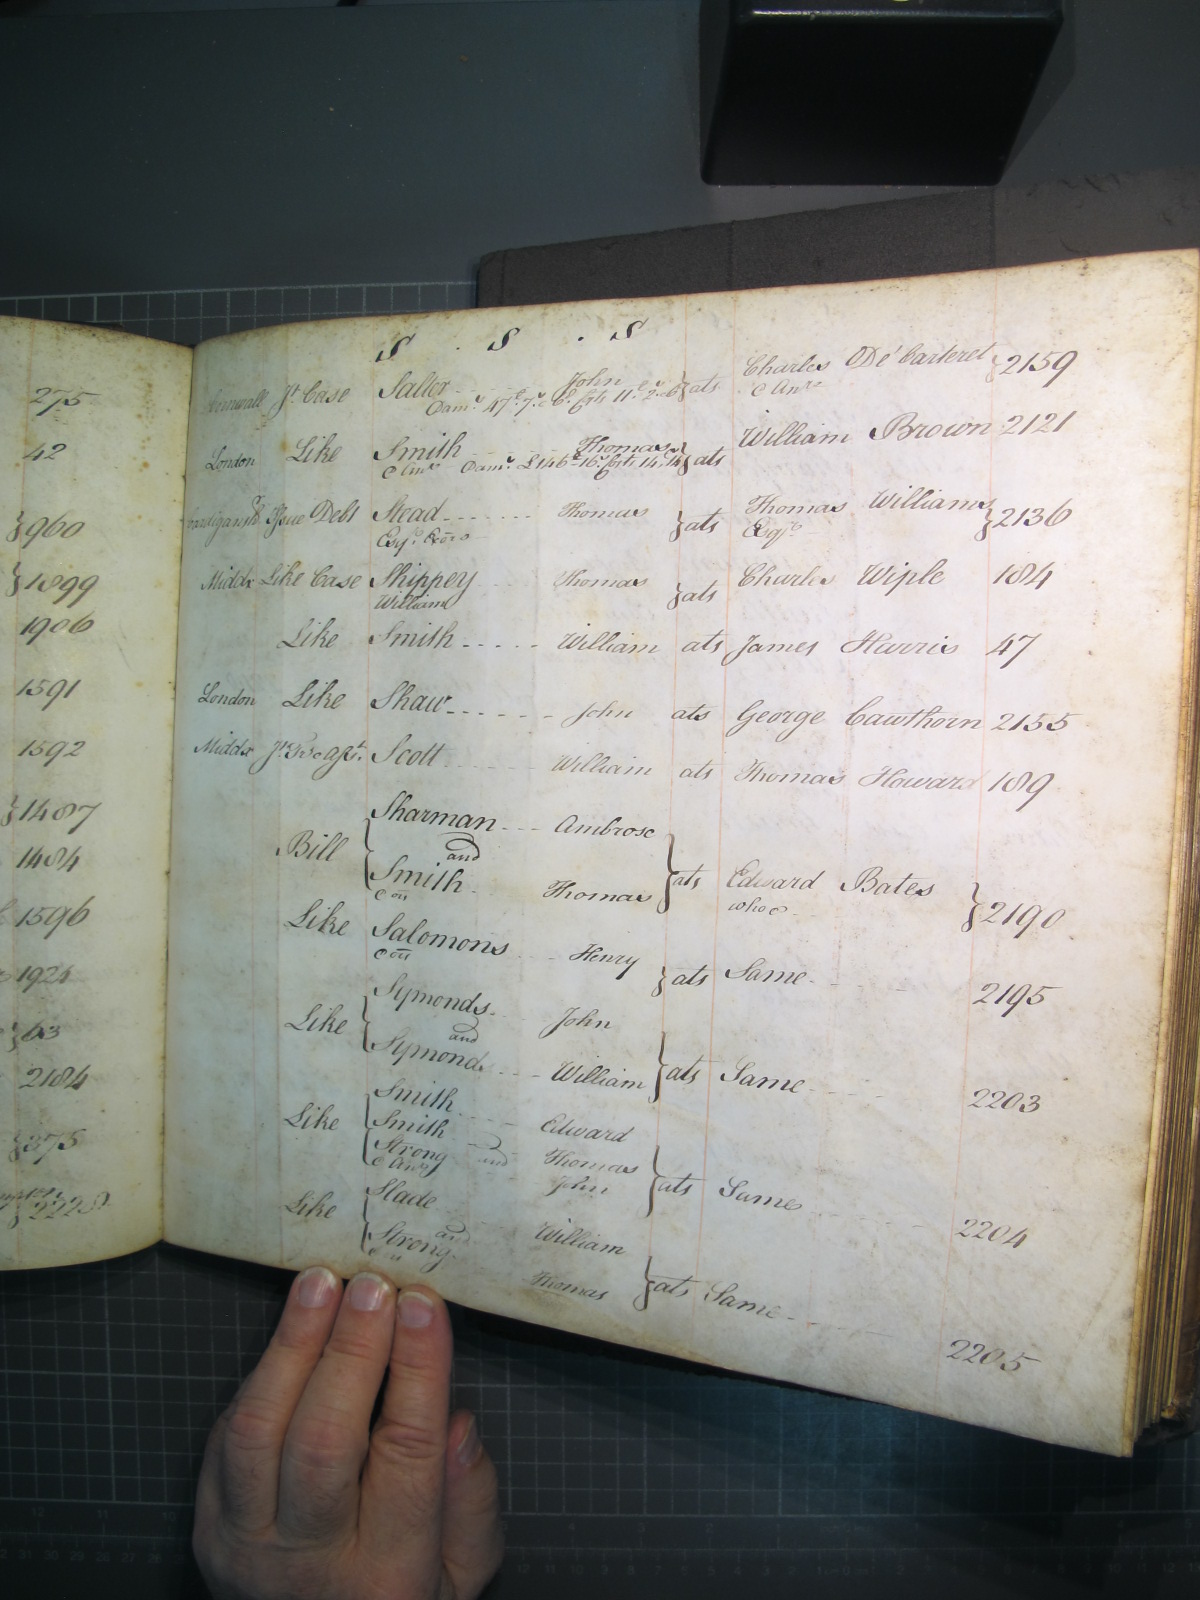 S . S . S
275
42
}960
}1899
1906
1591
1592
}1487
1484
1596
1924
}63
2184
}375
}2228
Cornwall Jt. Case Salter John }ats Charles De' Carteret }2159
London Like Smith Thomas }ats William Brown 2121
Issue Debt Stead Thomas }ats Thomas Williams }2136
Esqr. Esqr.
Middx Like Case Shippey Thomas }ats Charles Wiple 184
William
Like Smith William ats James Harris 47
London Like Shaw John ats George Cawthorn 2155
Middx Scott William ats Thomas Howard 189
Bill { Sharman Ambrose
and
Smith Thomas }ats Edward Bates }2190
Like Salomons Henry }ats Same 2195
Like { Symonds John
and
Symonds William }ats Same 2203
Like { Smith Edward
Smith Thomas
Strong and John }ats Same 2204
Like { Slade William
and
Strong Thomas }ats Same 2205